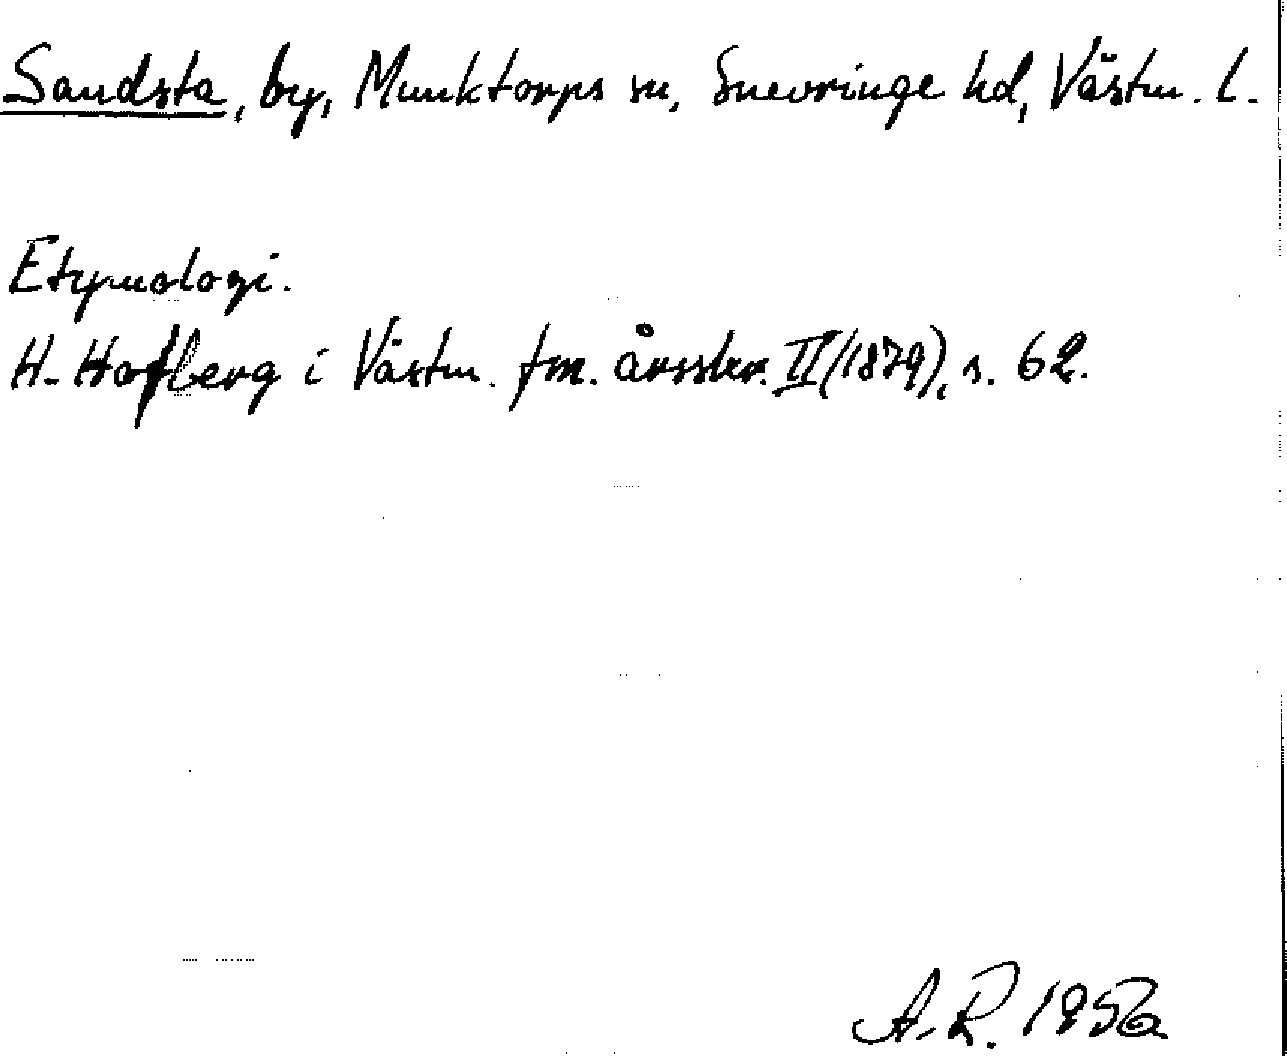 Sandsta, by, Munktorps sn, Snevringe hd, Västm. l.
Etymologi.
H. Hofberg i Västm. fm. årsskr. II (1879), s. 62.
A.R. 1956